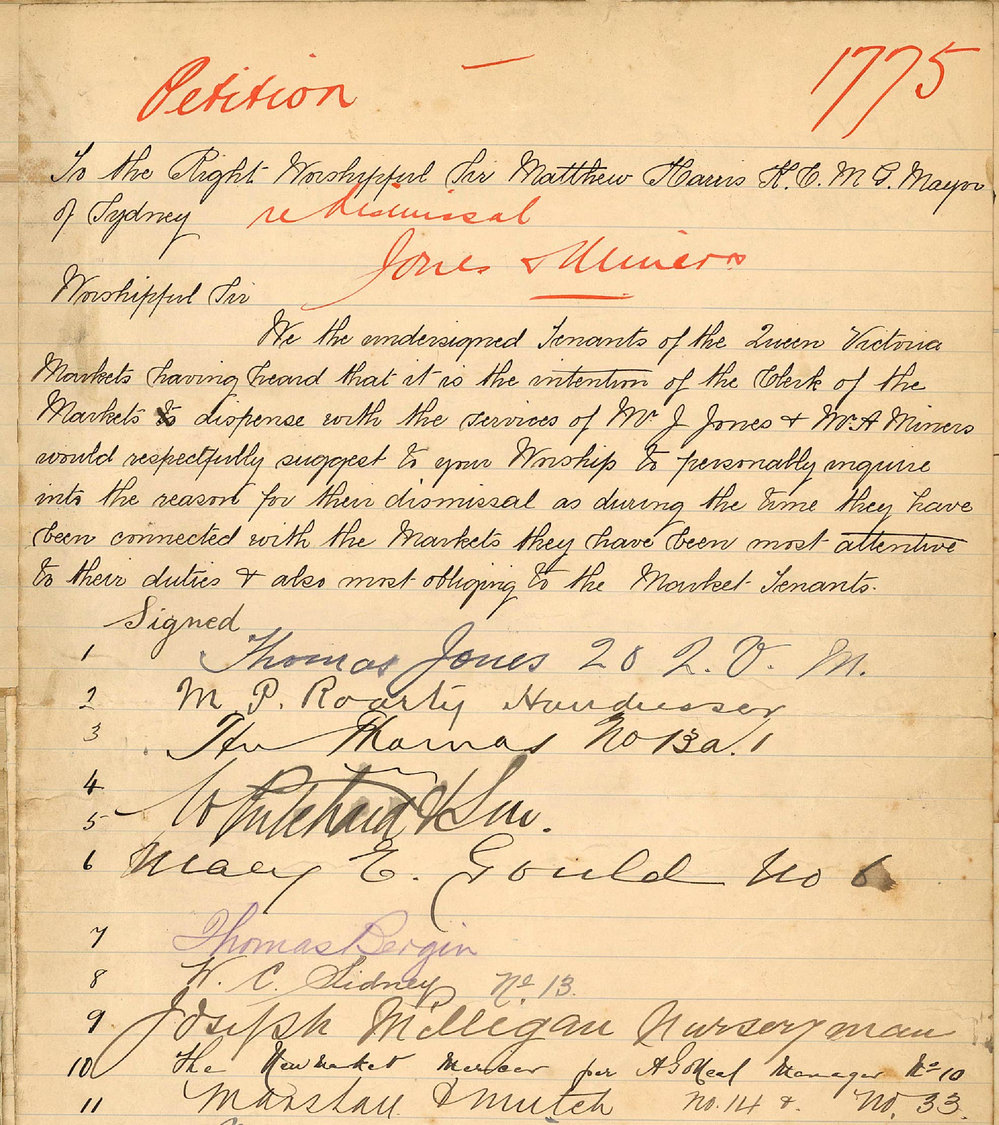 Petition — 1775
To the Right Worshipful Sir Matthew Harris K.C.M.G. Mayor
of Sydney re Dismissal
Jones & Miners
Worshipful Sir
We the undersigned Tenants of the Queen Victoria
Markets having heard that it is the intention of the Clerk of the
Markets to dispense with the services of Mr J Jones & Mr A Miners
would respectfully suggest to your Worship to personally inquire
into the reason for their dismissal as during the time they have
been connected with the Markets they have been most attentive
to their duties & also most obliging to the Market Tenants.
Signed
1 Thomas Jones 20 Q. V. M.
2 M. P. Roarty Hairdresser
3 Thomas No 13a.
4
5 W Pritchard & Son.
6 Mary E. Gould No 6
7 Thomas Bergin
8 W. C. Sidney No 13.
9 Joseph Milligan Nurseryman
10 The Newmarket Mercer per Manager No 10
11 Marshall & Mutch No. 14 & No. 33.